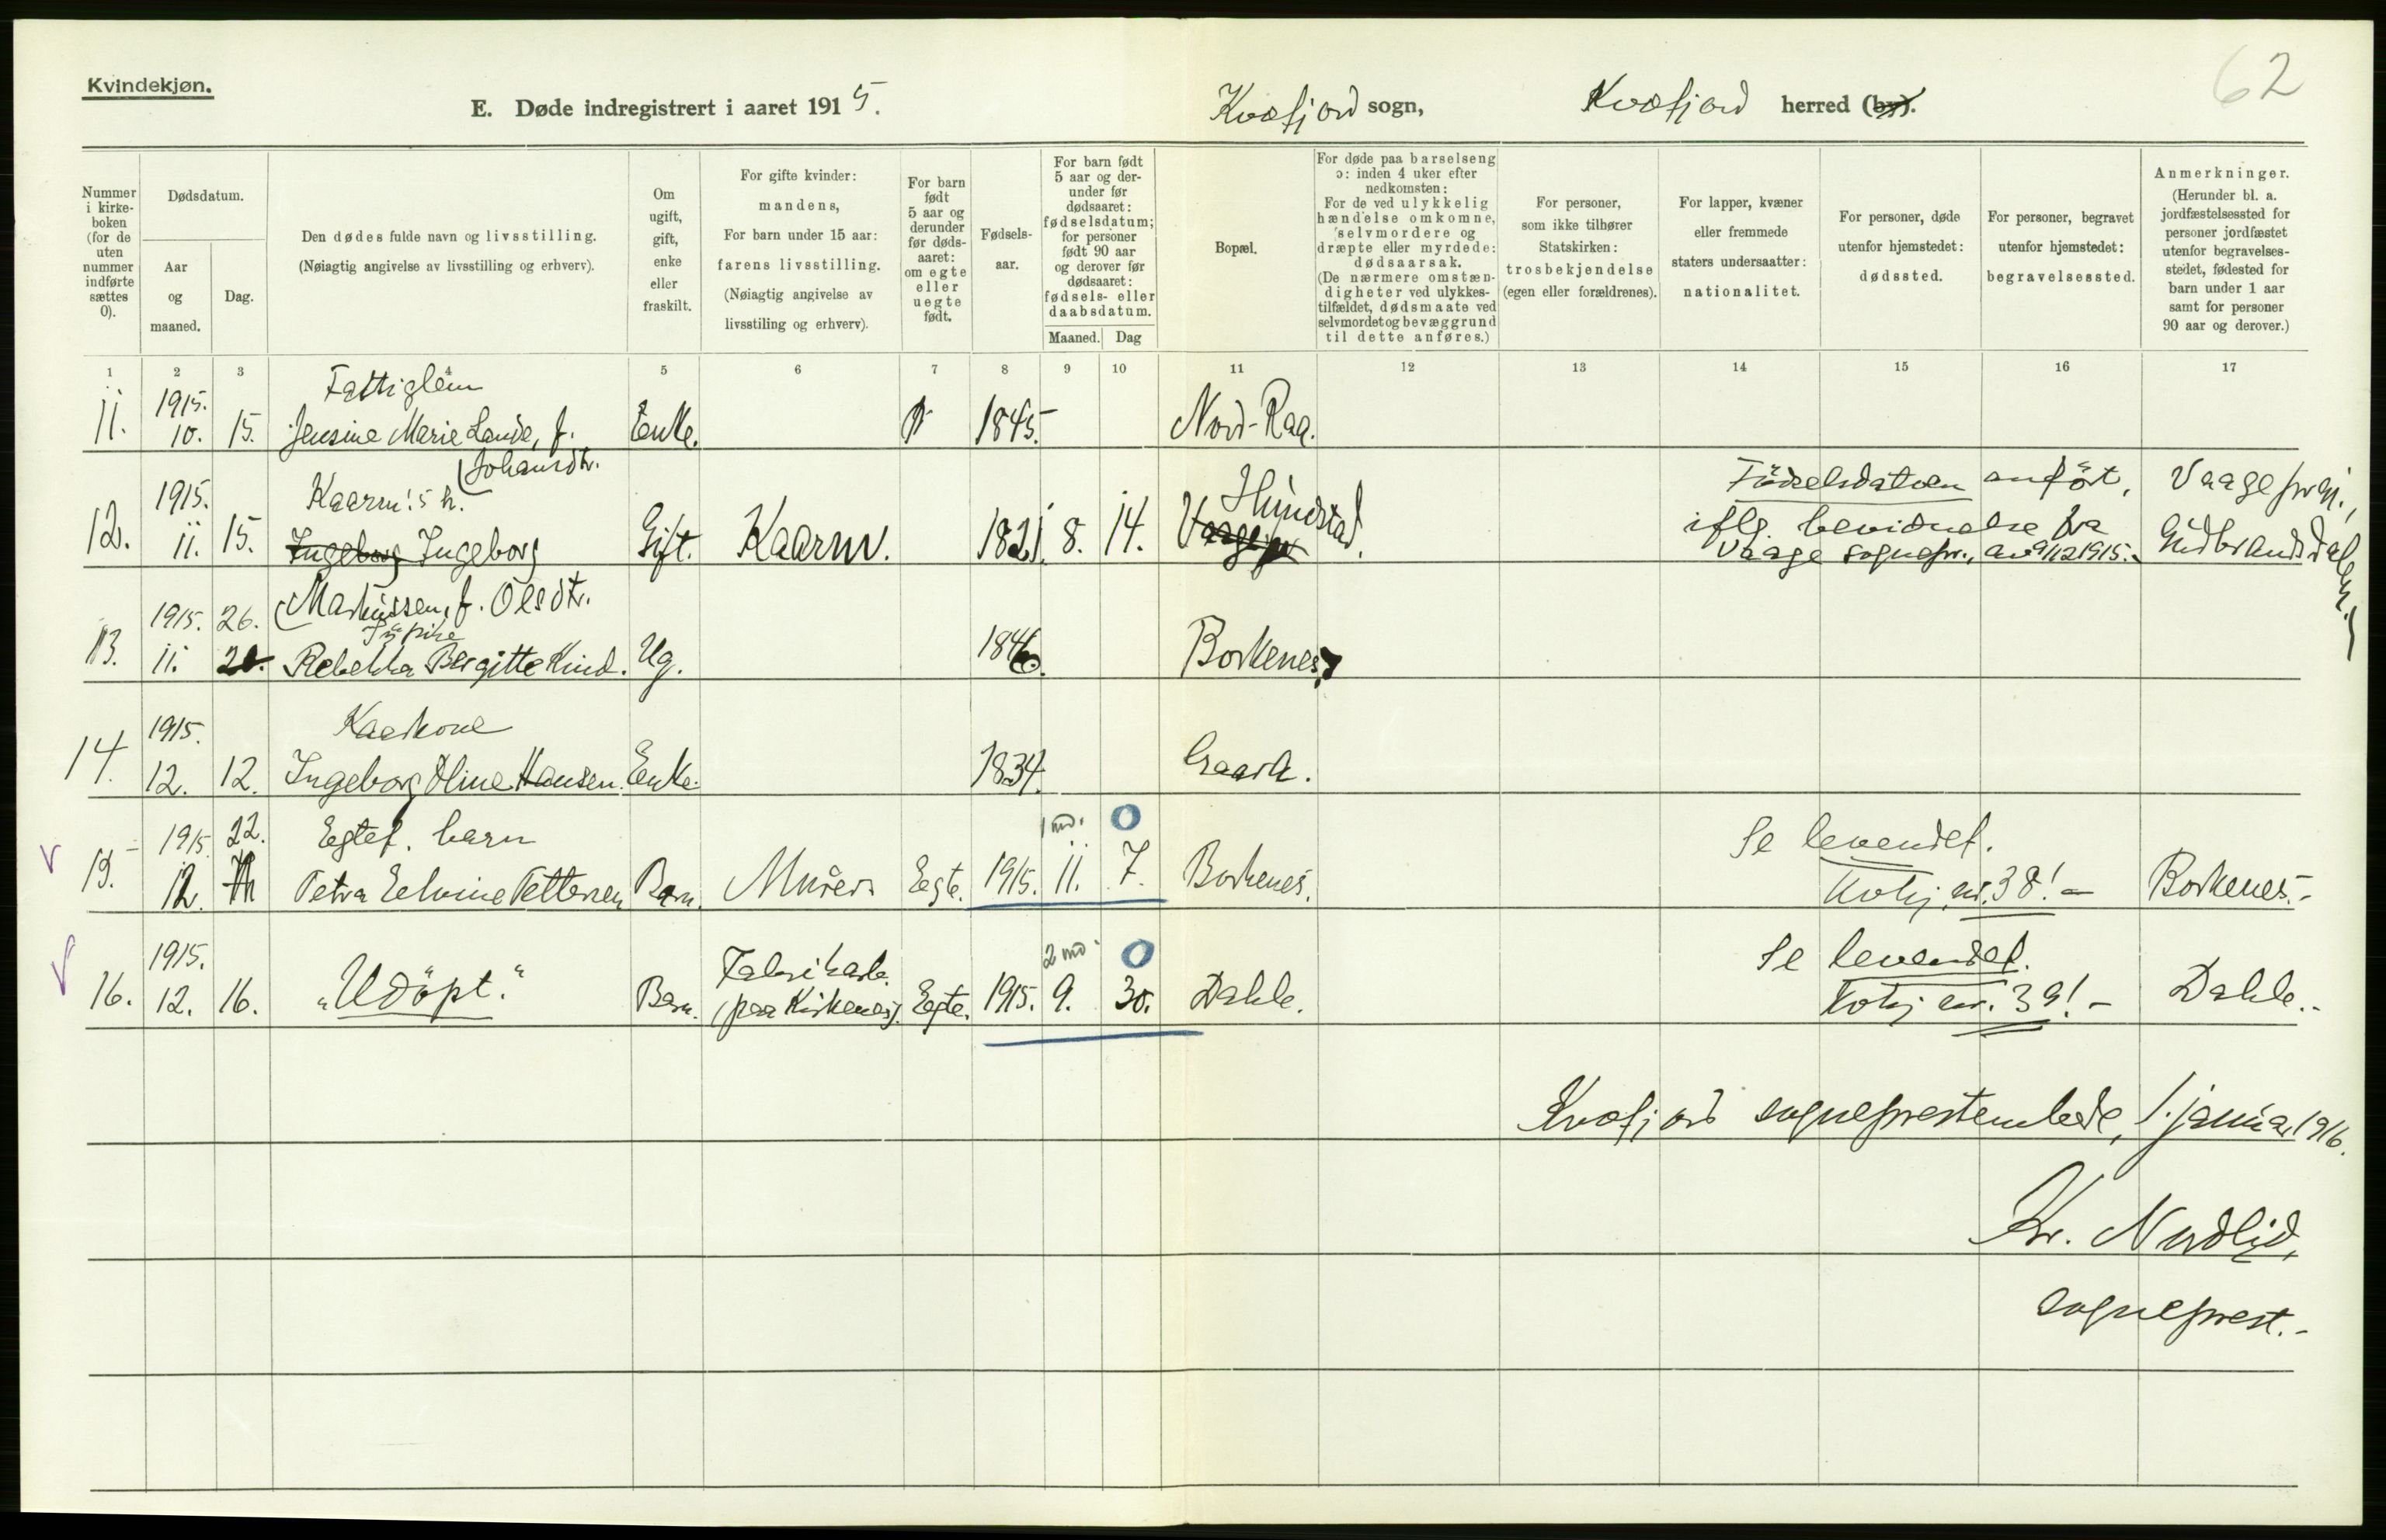 Kvindekjøn.
62
E. Døde indregistrert i aaret 1915.
Kvæfjord sogn, Kvæfjord herred (by).
Nummer i kirke-
boken
(for de
uten
nummer
indførte
sættes
0).
Dødsdatum.
Aar
og
maaned.
Dag.
Den dødes fulde navn og livsstilling.
(Nøiagtig angivelse av livsstilling og erhverv).
Om
ugift,
gift,
enke
eller
fraskilt.
For gifte kvinder:
mandens,
For barn under 15 aar:
farens livsstilling.
(Nøiagtig angivelse av
livsstiling og erhverv).
For barn
født
5 aar og
derunder
før døds-
aaret:
om egte
eller
uegte
født.
Fødsels-
aar.
For barn født
5 aar og der-
under før
dødsaaret:
fødselsdatum;
for personer
født 90 aar
og derover før
dødsaaret:
fødsels- eller
daabsdatum.
Maaned. Dag
Bopæl.
For døde paa barselseng
ɔ: inden 4 uker efter
nedkomsten:
For de ved ulykkelig
hændelse omkomne,
selvmordere og
dræpte eller myrdede:
dødsaarsak.
(De nærmere omstæn-
digheter ved ulykkes-
tilfældet, dødsmaate ved
selvmordet og bevæggrund
til dette anføres.)
For personer,
som ikke tilhører
Statskirken:
trosbekjendelse
(egen eller forældrenes).
For lapper, kvæner
eller fremmede
staters undersaatter:
nationalitet.
For personer, døde
utenfor hjemstedet:
dødssted.
For personer, begravet
utenfor hjemstedet:
begravelsessted.
Anmerkninger.
(Herunder bl. a.
jordfæstelsessted for
personer jordfæstet
utenfor begravelses-
stedet, fødested for
barn under 1 aar
samt for personer
90 aar og derover.)
1 2 3 4 5 6 7 8 9 10 11 12 13 14 15 16 17
1915. Fattiglem
11. 10. 15. Jensine Marie Lande, f. Enke. 1845. Nord-Raa.
(Johansdtr.
1915. Kaarm:s h. Hundstad.
12. 11. 15. Ingeborg Ingeborg Gift. Kaarm. 1821. 8. 14.
Fødselsdatoen anført, Vaage prgj.,
iflg. bevidnelse fra Gudbrandsdalen.)
Vaage sognepr., av 9/12 1915.
(Markussen, f. Olsdtr.
1915. 26.
13. 11. 20. Rebekka Bergitte Kind. Ug. 1846. Borkenes.
1915. Kaarkone
14. 12. 12. Ingeborg Oline Hansen. Enke. 1834. Graark.
1915. 22. Egtef. barn 1 md. 0 Se levendef.
15. 12. Petra Elvine Pettersen Barn. Murer Egte. 1915. 11. 7. Borkenes. Kvkj. nr. 38! - Borkenes.-
1915. 2 md. 0 Se levendef.
16. 12. 16. "Udøpt." Barn. Fabrikarb. (paa Kirkenes). Egte. 1915. 9. 30. Dahle. Kvkj nr. 39! - Dahle.-
Kvæfjord sogneprestembede, 1. januar 1916.
Kr. Nordlid,
sogneprest.-